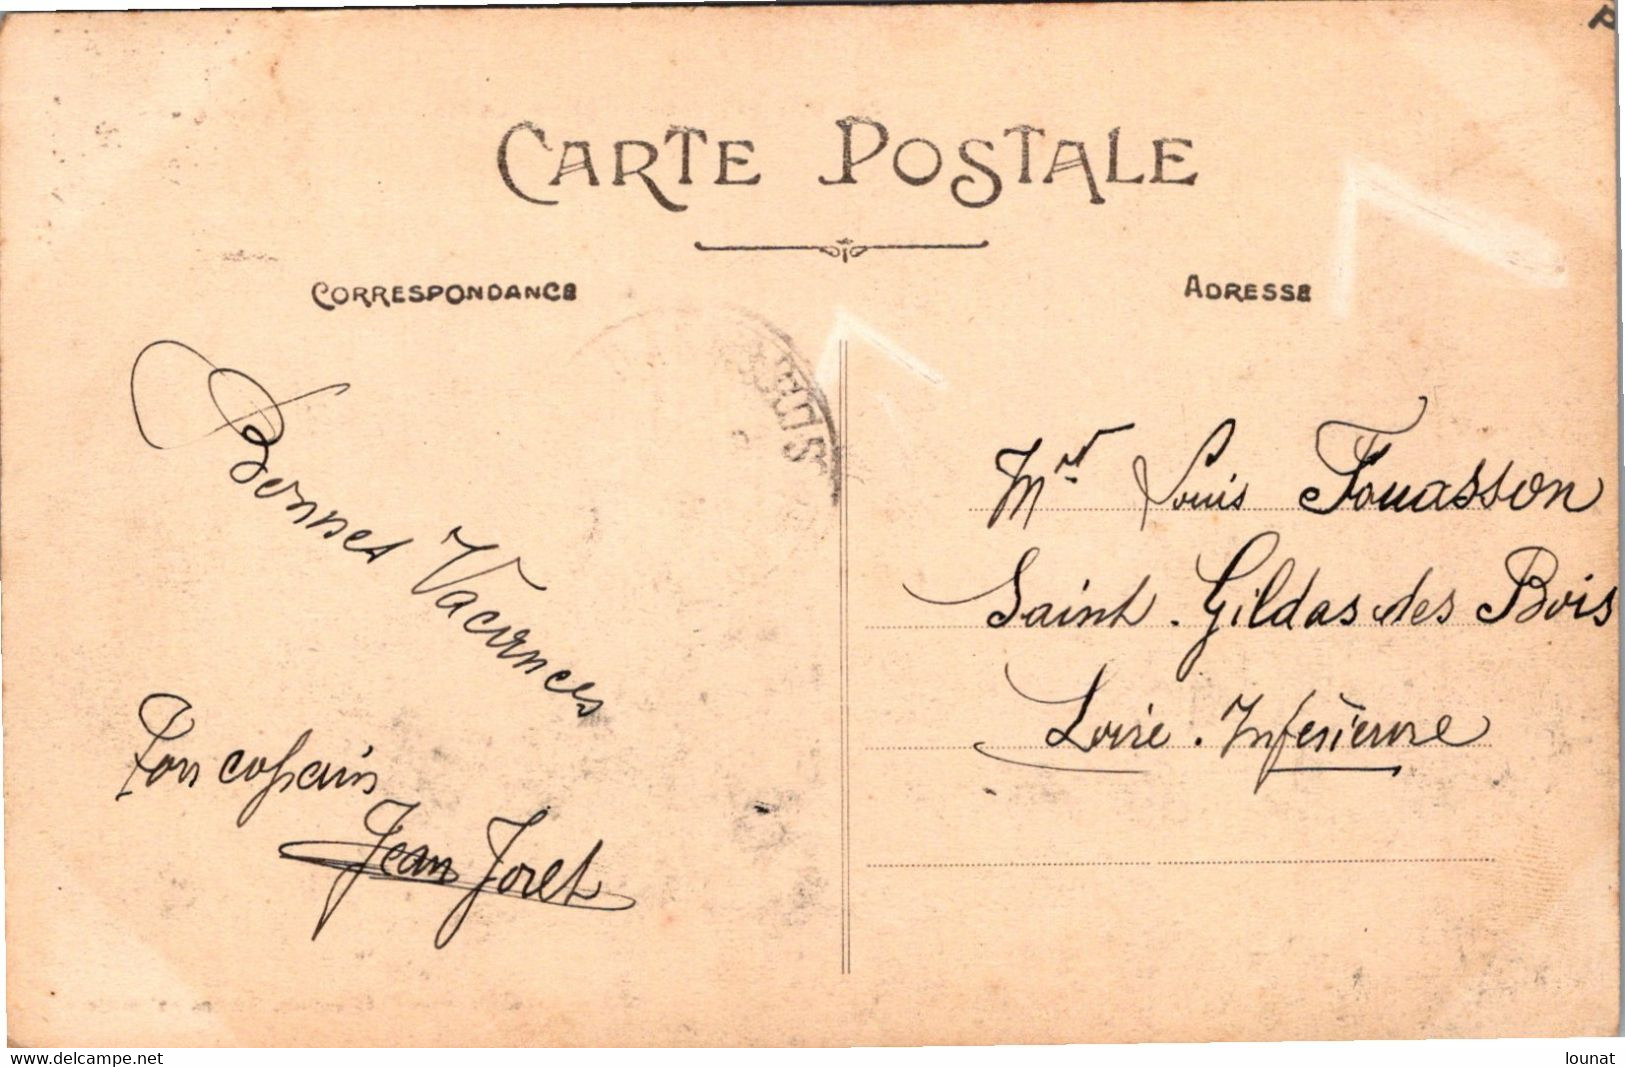 CARTE POSTALE
CORRESPONDANCE
ADRESSE
Bonnes Vacances
Ton copain
Jean Joret
Mr Louis Fouasson
Saint-Gildas des Bois
Loire-Inférieure
www.delcampe.net
lounat